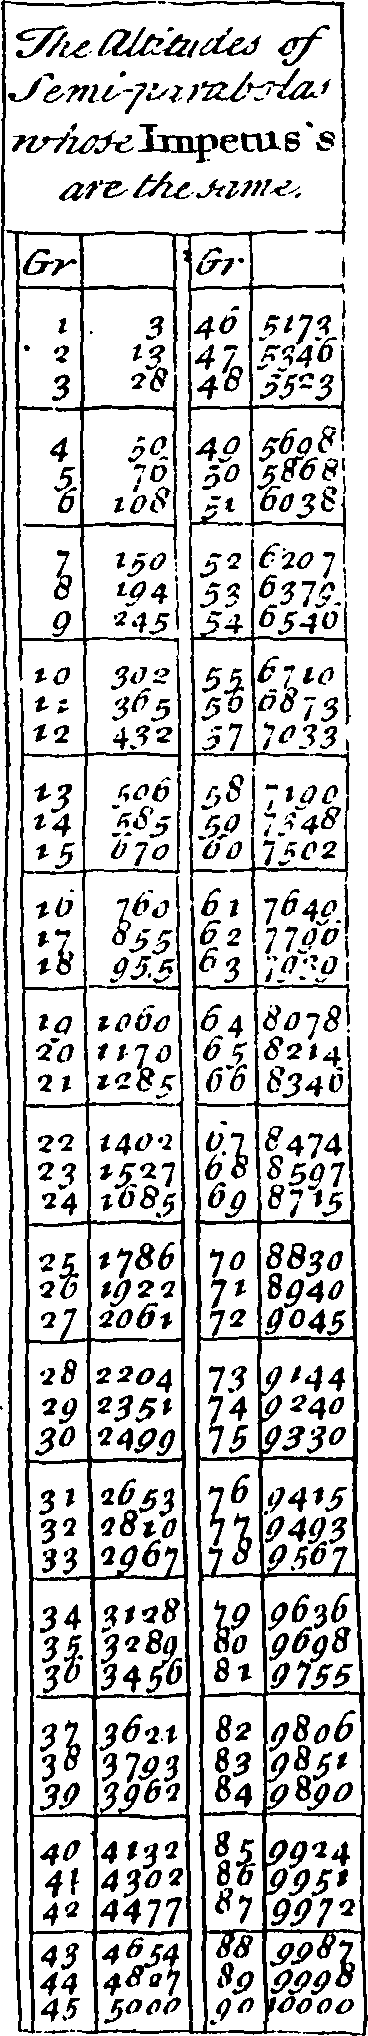 The Altitudes of
Semi-parabolas
whose Impetus's
are the same.
Gr Gr
1 3 46 5173
2 13 47 5346
3 28 48 5523
4 50 49 5698
5 76 50 5868
6 108 51 6038
7 150 52 6207
8 194 53 6379
9 245 54 6546
10 302 55 6710
11 365 56 6873
12 432 57 7033
13 506 58 7190
14 585 59 7348
15 670 60 7502
16 760 61 7649
17 855 62 7796
18 955 63 7939
19 1060 64 8078
20 1170 65 8214
21 1285 66 8346
22 1402 67 8474
23 1527 68 8597
24 1685 69 8715
25 1786 70 8830
26 1922 71 8940
27 2061 72 9045
28 2204 73 9144
29 2351 74 9240
30 2499 75 9330
31 2653 76 9415
32 2810 77 9493
33 2967 78 9567
34 3128 79 9636
35 3289 80 9698
36 3456 81 9755
37 3621 82 9806
38 3793 83 9851
39 3962 84 9890
40 4132 85 9924
41 4302 86 9951
42 4477 87 9972
43 4654 88 9987
44 4827 89 9998
45 5000 90 10000